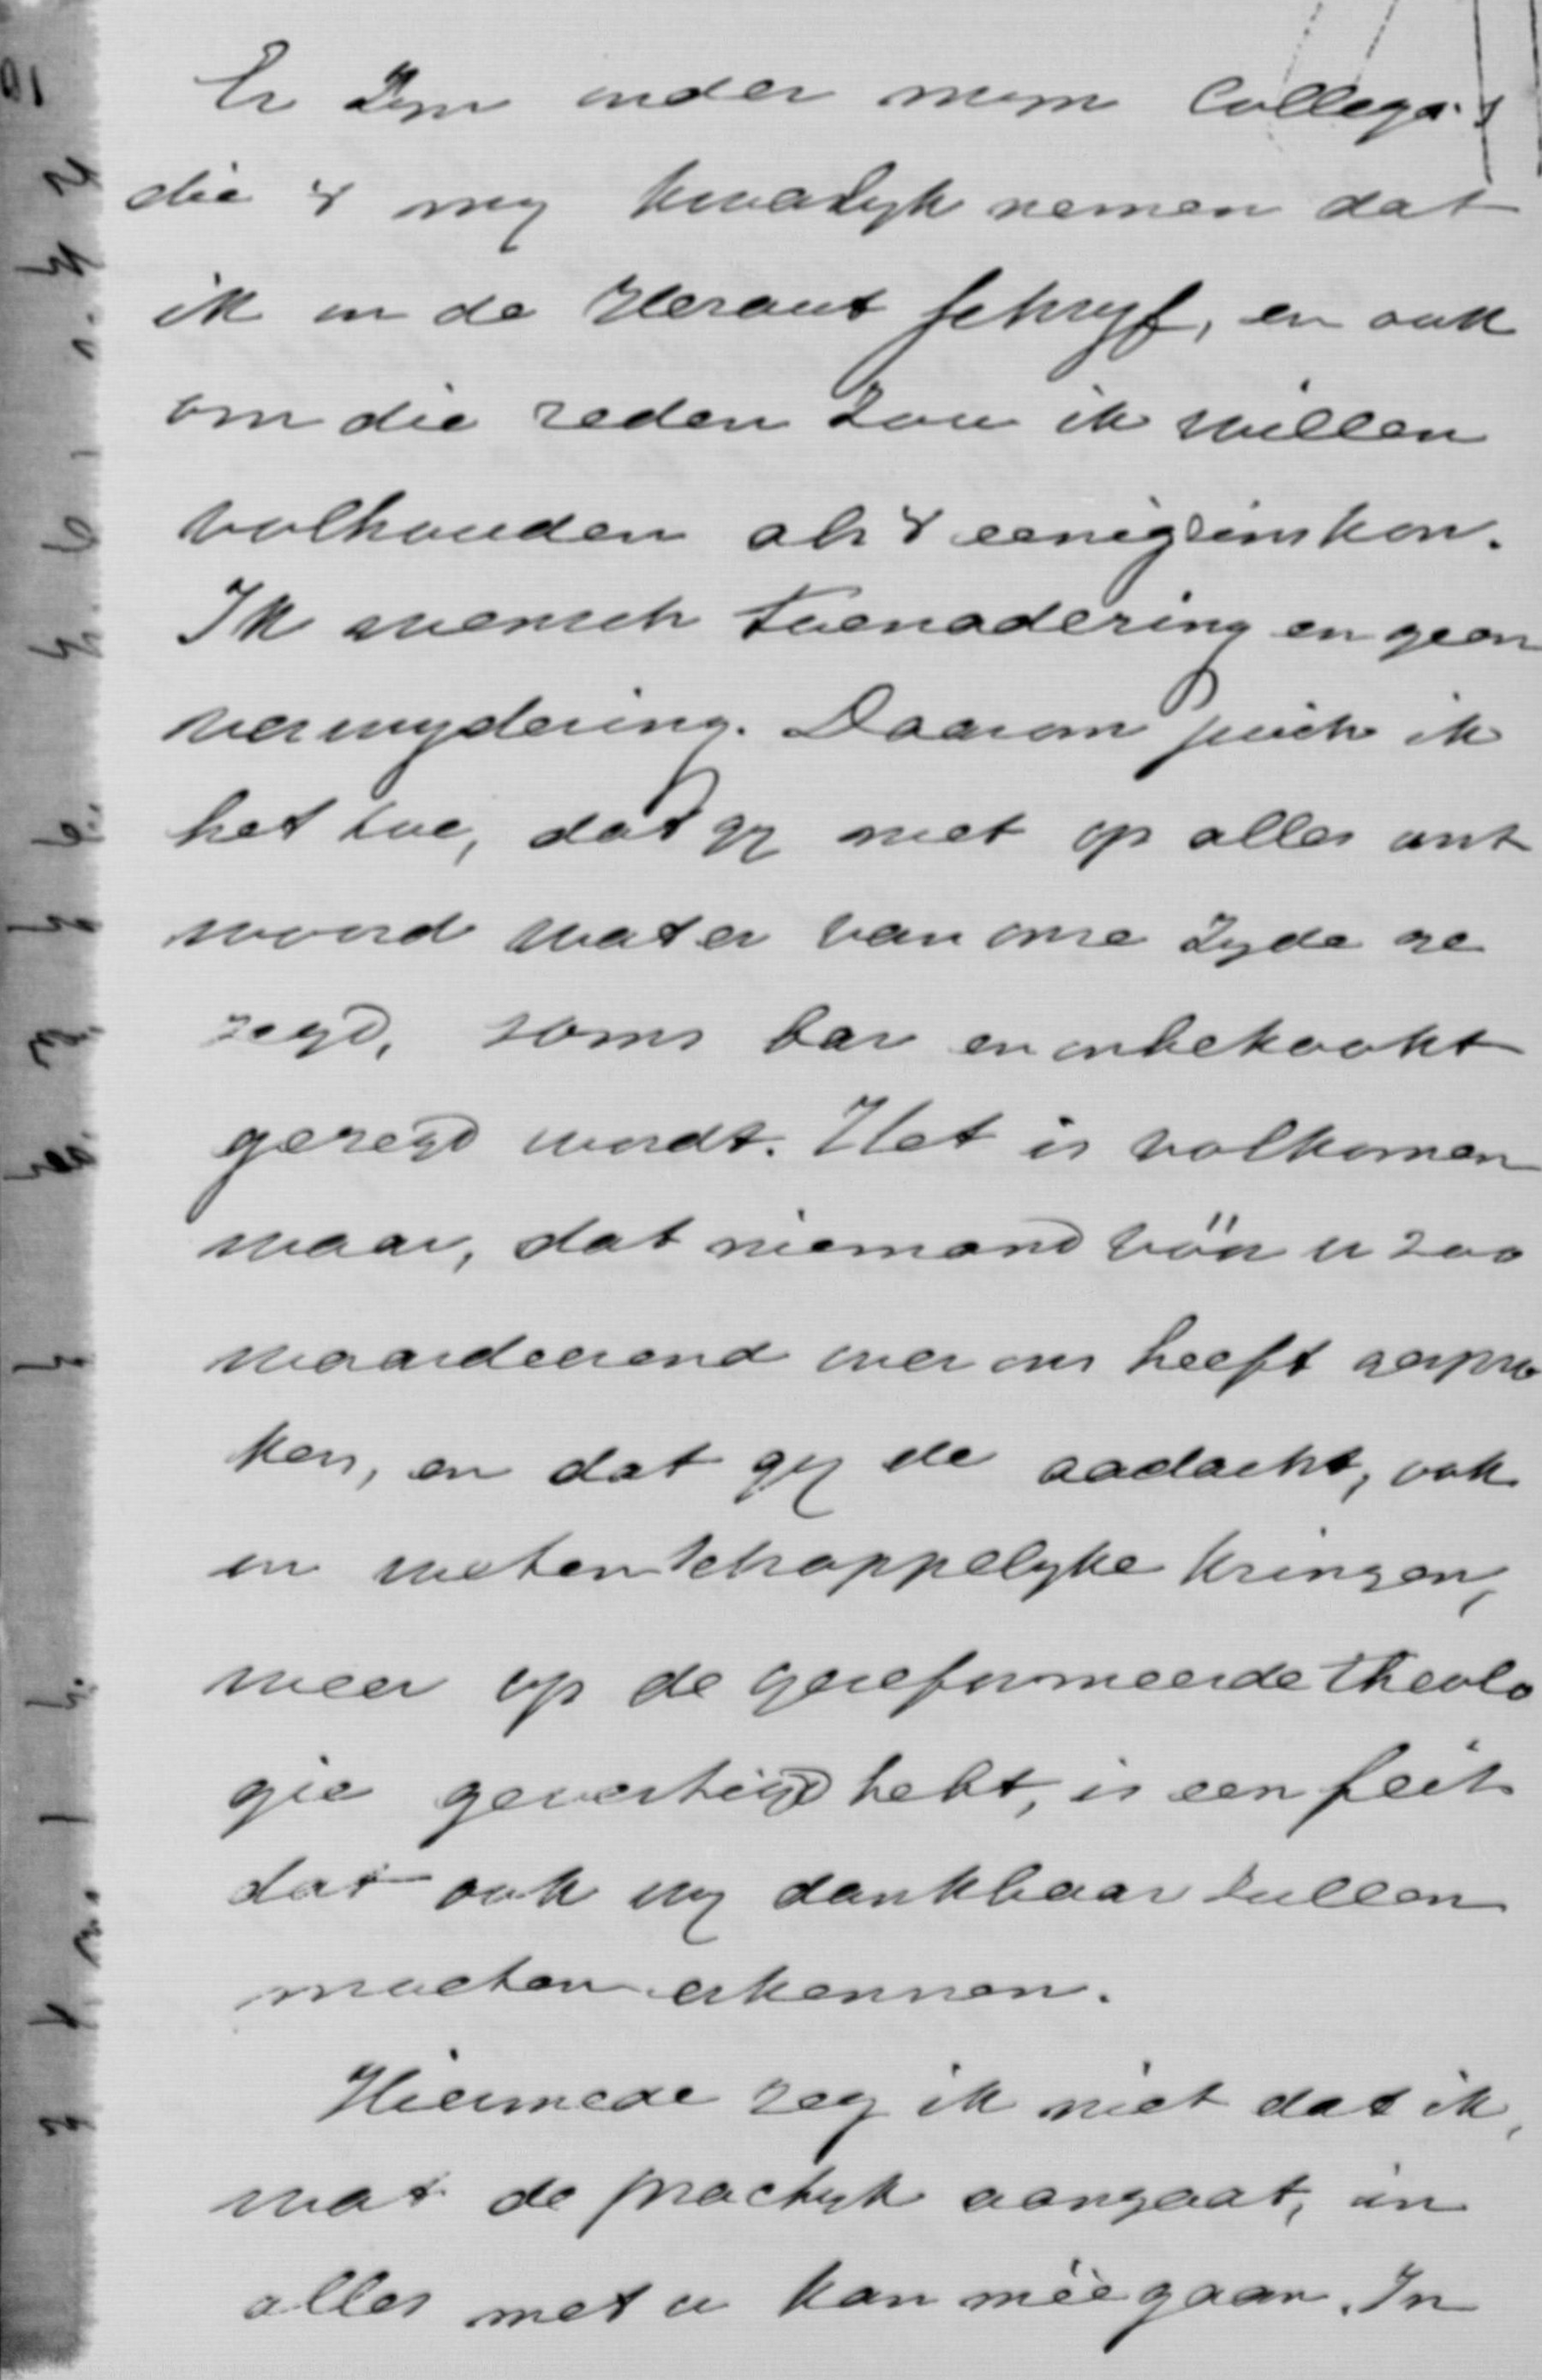 Er zyn onder myn Collega's
die 't my kwalyk nemen dat
ik in de Heraut schryf, en ook
om die reden zou ik willen
volhouden als 't eenigzins kon.
Ik wensch toenadering en geen
verwydering. Daarom juich ik
het toe, dat gy niet op alles ant
woord wat er van onze zyde ge
zegd, soms bar en onbekookt
gezegd wordt. Het is volkomen
waar, dat niemand vóór u zoo
waardeerend over ons heeft gespro
ken, en dat gy de aadacht, ook
in wetenschappelyke kringen,
weer op de gereformeerde theolo
gie gevestigd hebt, is een feit
dat ook wy dankbaar zullen
moeten erkennen.
Hiermede zeg ik niet dat ik,
wat de practyk aangaat, in
alles met u kan meêgaan. In